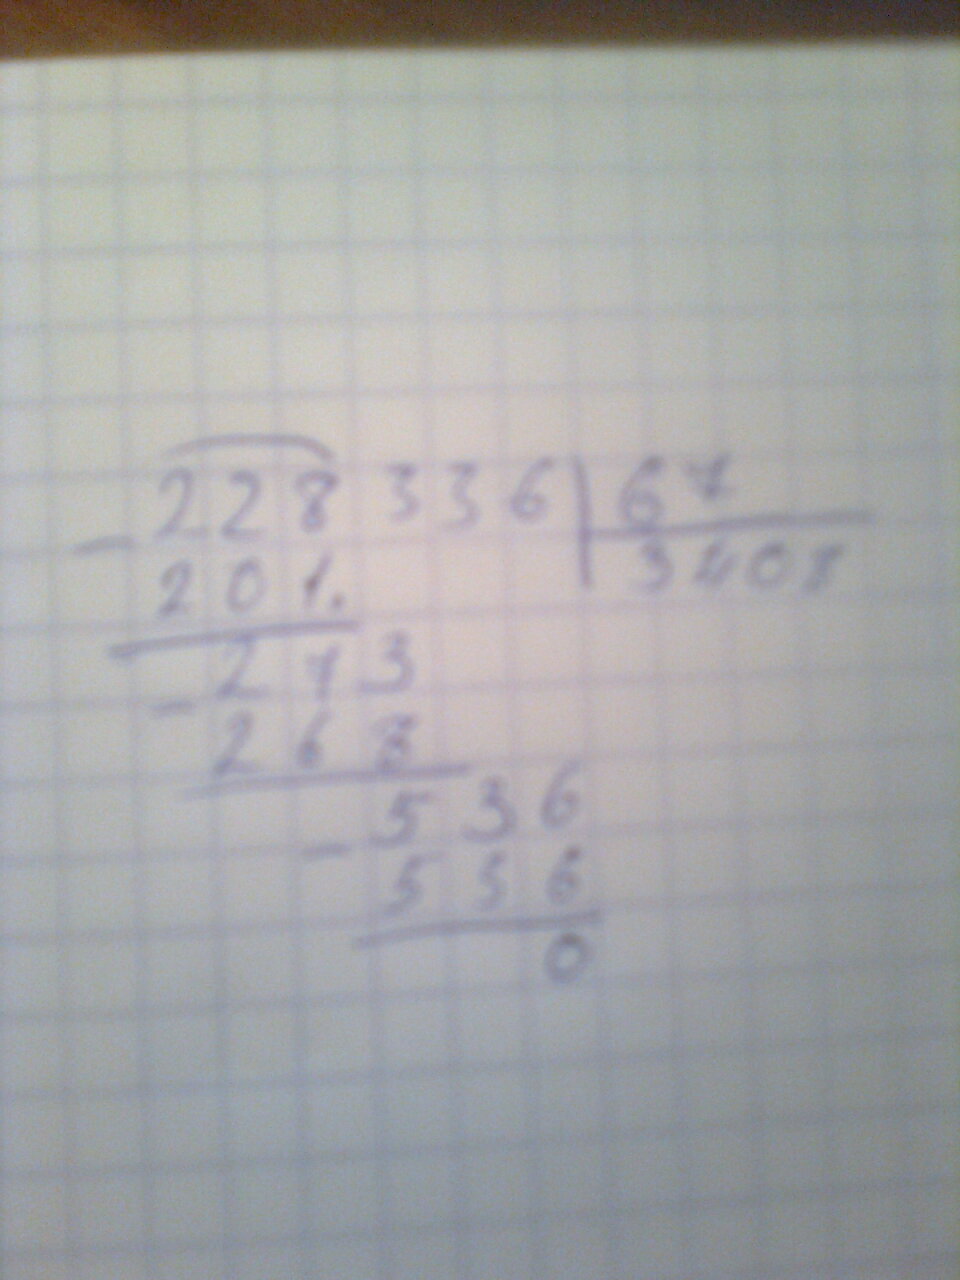 228336 67
3408
201.
273
268
536
536
0